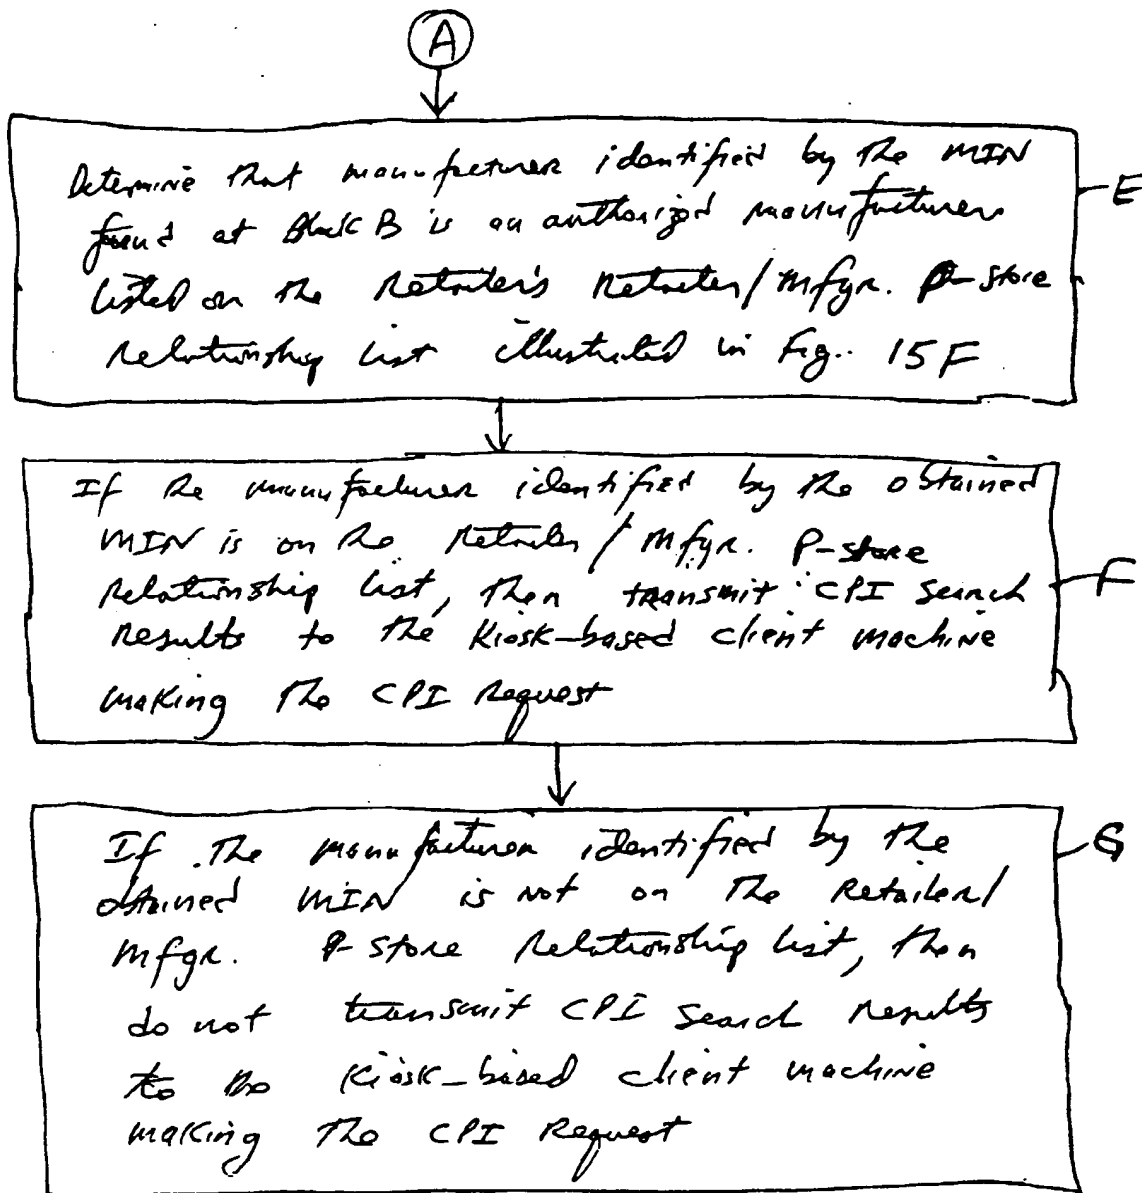 A
Determine that manufacturer identified by the MIN
found at Block B is an authorized manufacturer
listed on the Retailer's Retailer/Mfgr. P-store
relationship list illustrated in Fig. 15F
E
If the manufacturer identified by the obtained
MIN is on the Retailer/Mfgr. P-store
Relationship list, then transmit CPI Search
Results to the Kiosk-based client machine
making the CPI Request
F
If the manufacturer identified by the
obtained MIN is not on the Retailer/
Mfgr. P-store Relationship list, then
do not transmit CPI Search Results
to the Kiosk-based client machine
making the CPI Request
G